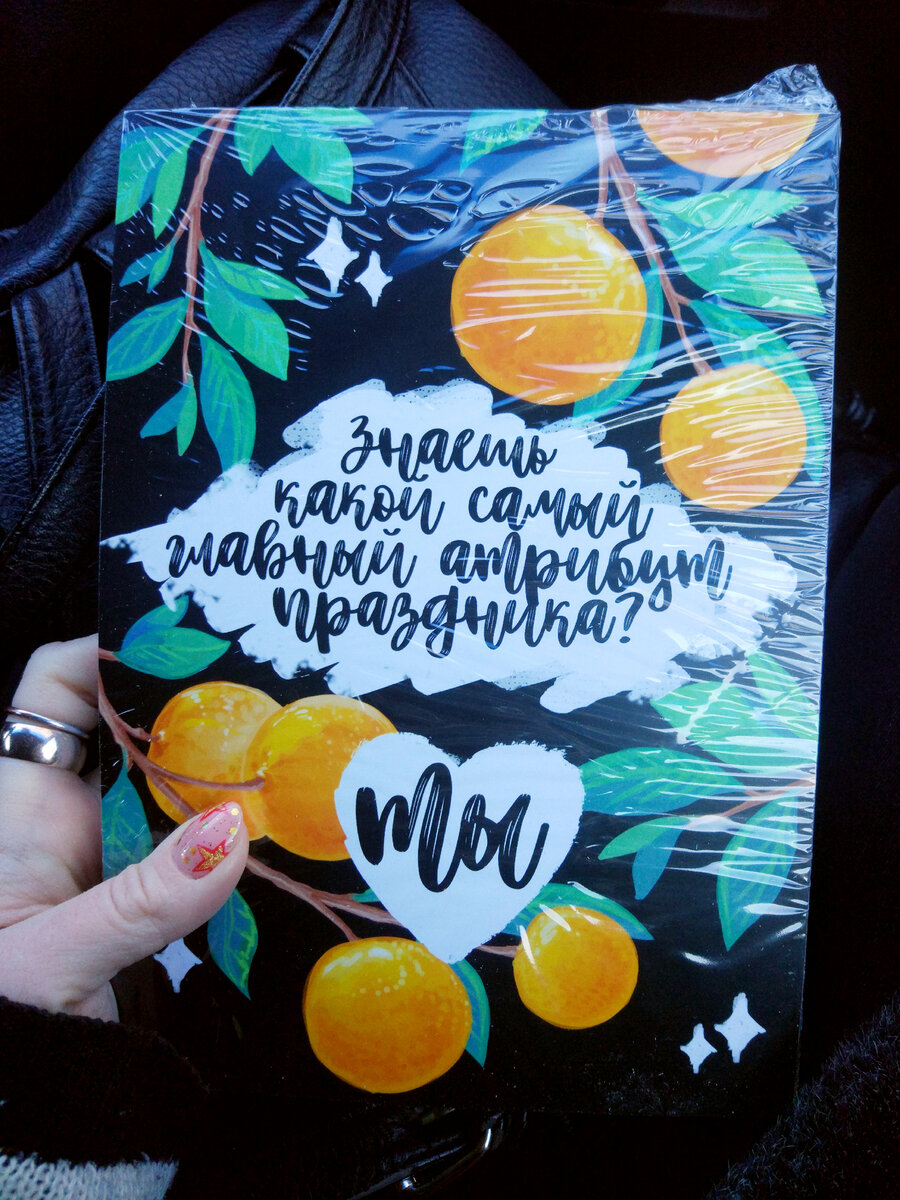 Знаешь
какой самый
главный атрибут
праздника?
ты